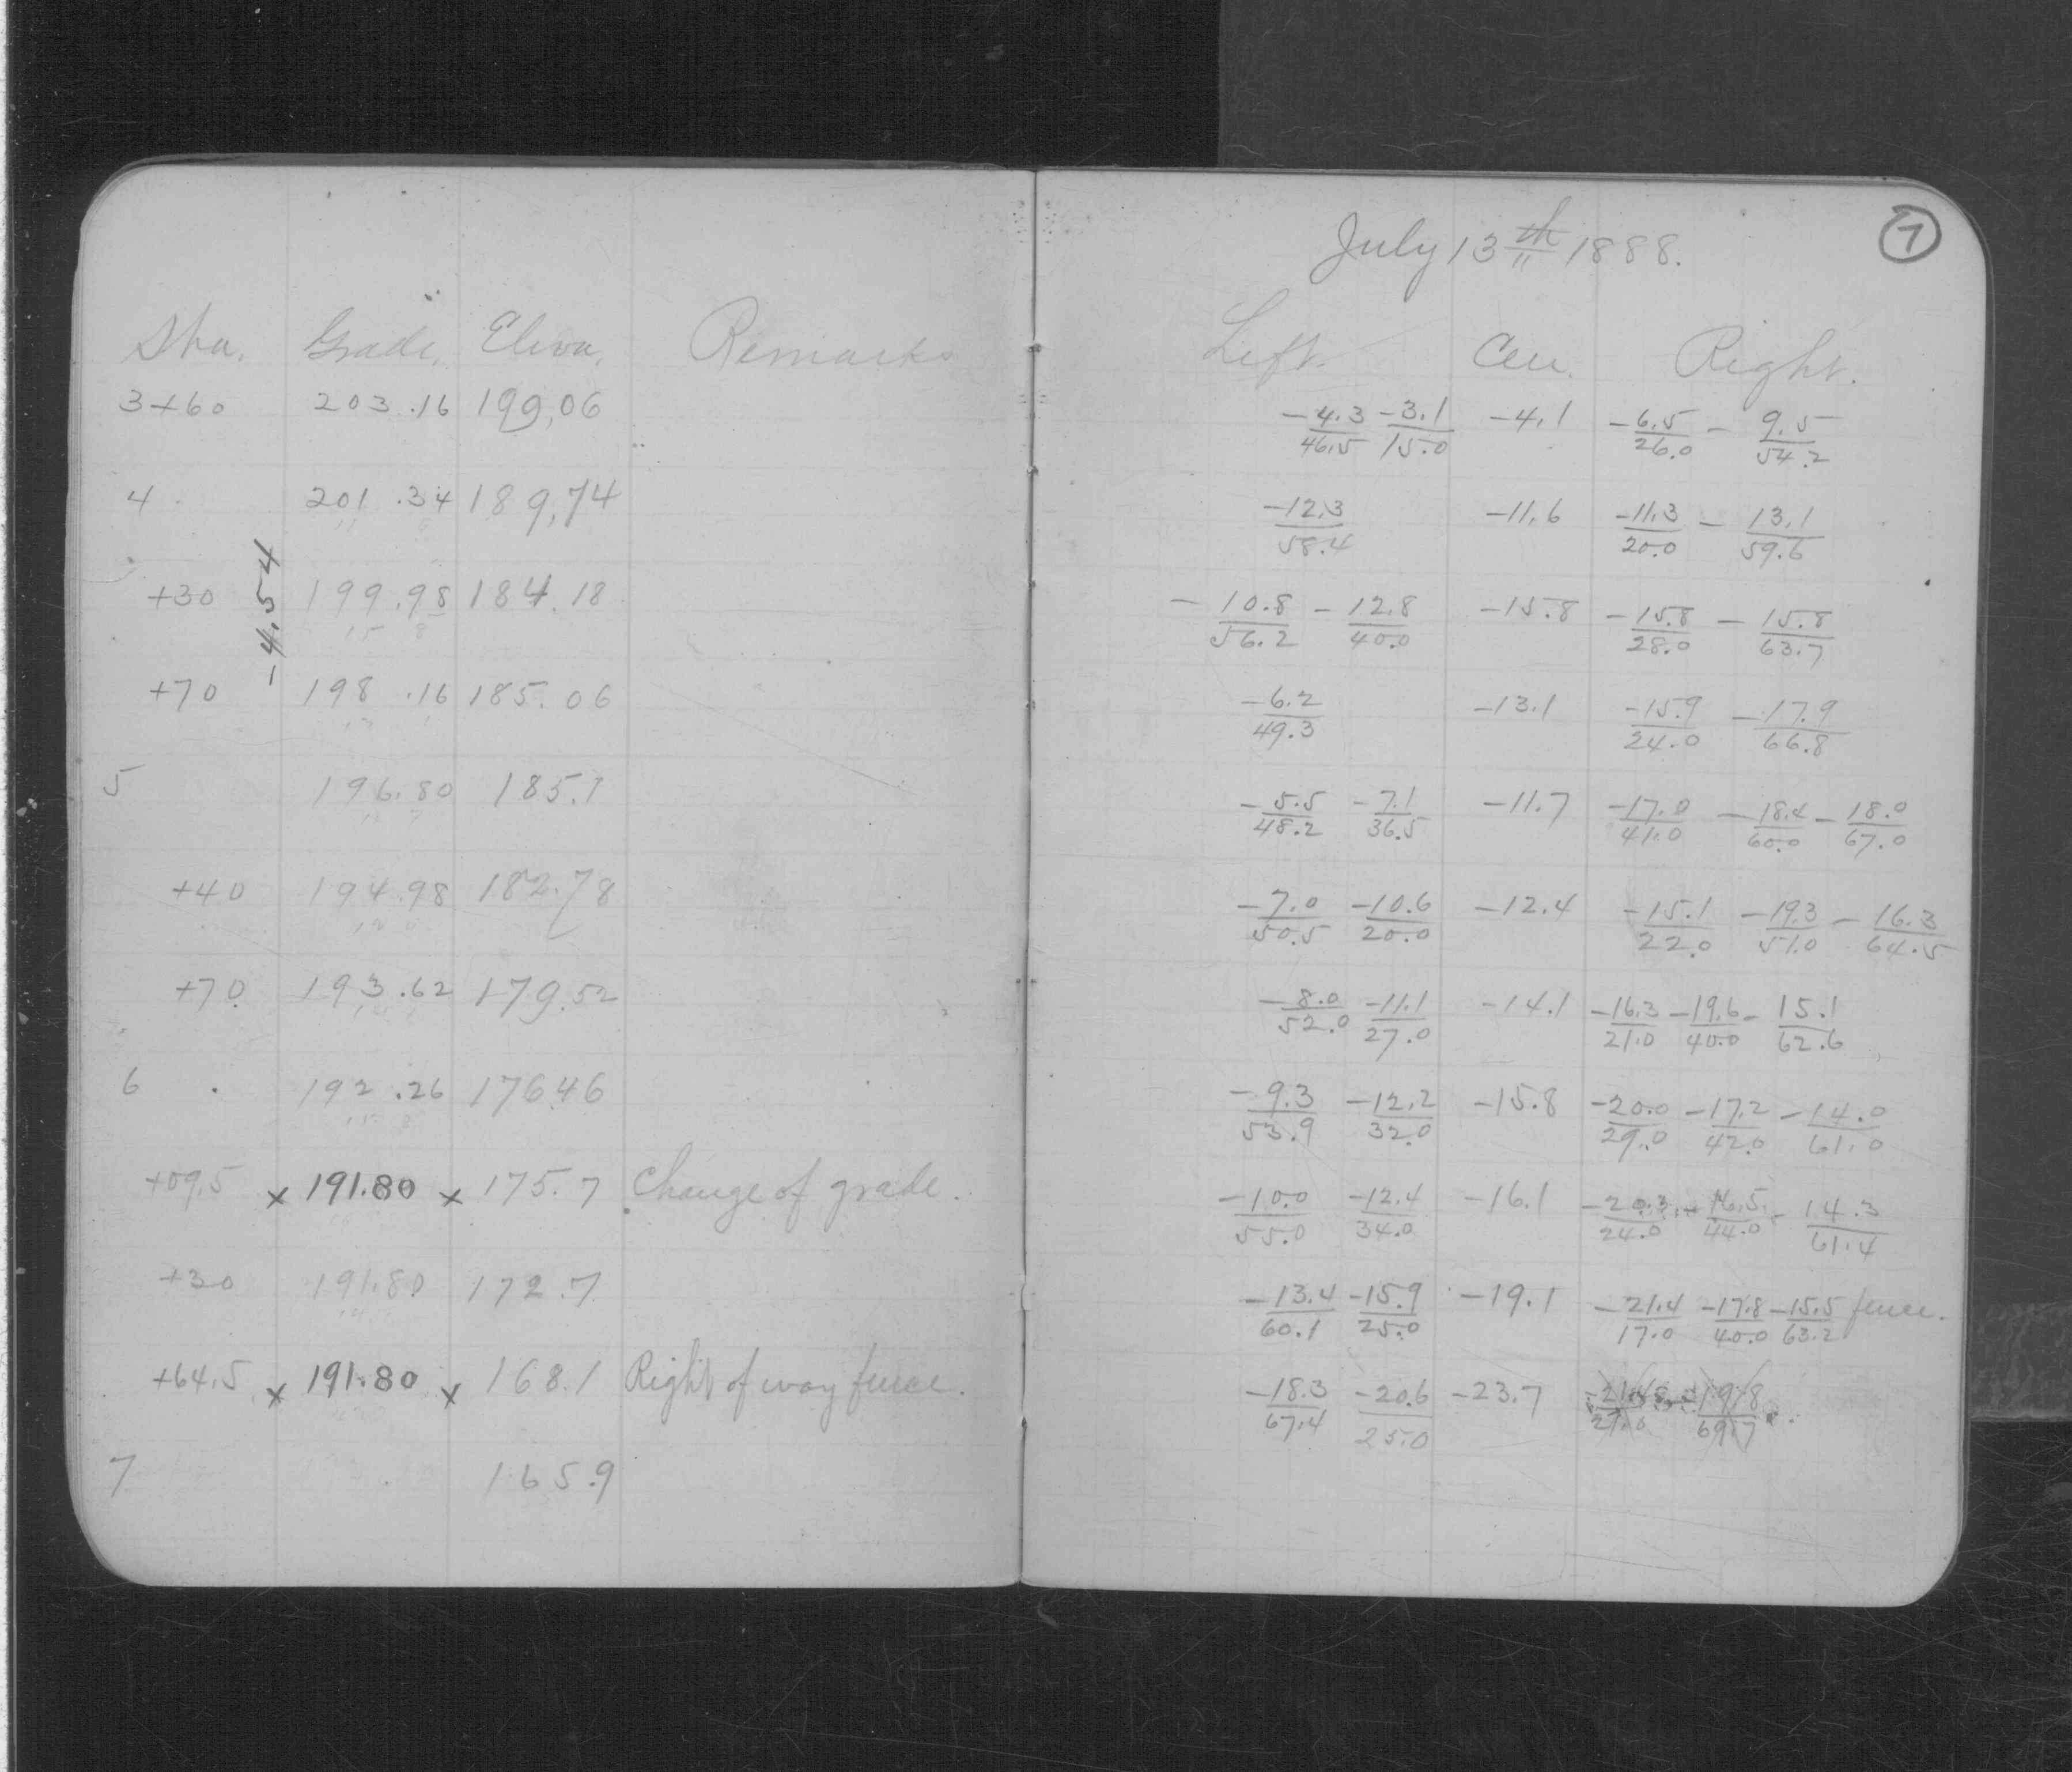 Sta. Grade. Eleva. Remarks
3+60 203.16 199.06
4 201.34 189.74
-4.54
+30 199.98 184.18
+70 198.16 185.06
5 196.80 185.1
+40 194.98 182.78
+70 193.62 179.52
6 192.26 176.46
+09.5 x 191.80 x 175.7 Change of grade.
+30 191.80 172.7
+64.5 x 191.80 x 168.1 Right of way fence.
7 165.9
July 13th 1888.
7
Left. Cen. Right.
-4.3/46.5 -3.1/15.0 -4.1 -6.5/26.0 - 9.5/54.2
-12.3/58.4 -11.6 -11.3/20.0 - 13.1/59.6
-10.8/56.2 -12.8/40.0 -15.8 -15.8/28.0 - 15.8/63.7
-6.2/49.3 -13.1 -15.9/24.0 -17.9/66.8
-5.5/48.2 -7.1/36.5 -11.7 -17.0/41.0 -18.4/60.0 -18.0/67.0
-7.0/50.5 -10.6/20.0 -12.4 -15.1/22.0 -19.3/51.0 -16.3/64.5
-8.0/52.0 -11.1/27.0 -14.1 -16.3/21.0 -19.6/40.0 - 15.1/62.6
-9.3/53.9 -12.2/32.0 -15.8 -20.0/29.0 -17.2/42.0 -14.0/61.0
-10.0/55.0 -12.4/34.0 -16.1 -20.3/24.0 - 16.5/44.0 - 14.3/61.4
-13.4/60.1 -15.9/25.0 -19.1 -21.4/17.0 -17.8/40.0 -15.5/63.2 fence.
-18.3/67.4 -20.6/25.0 -23.7 19.8/69.7